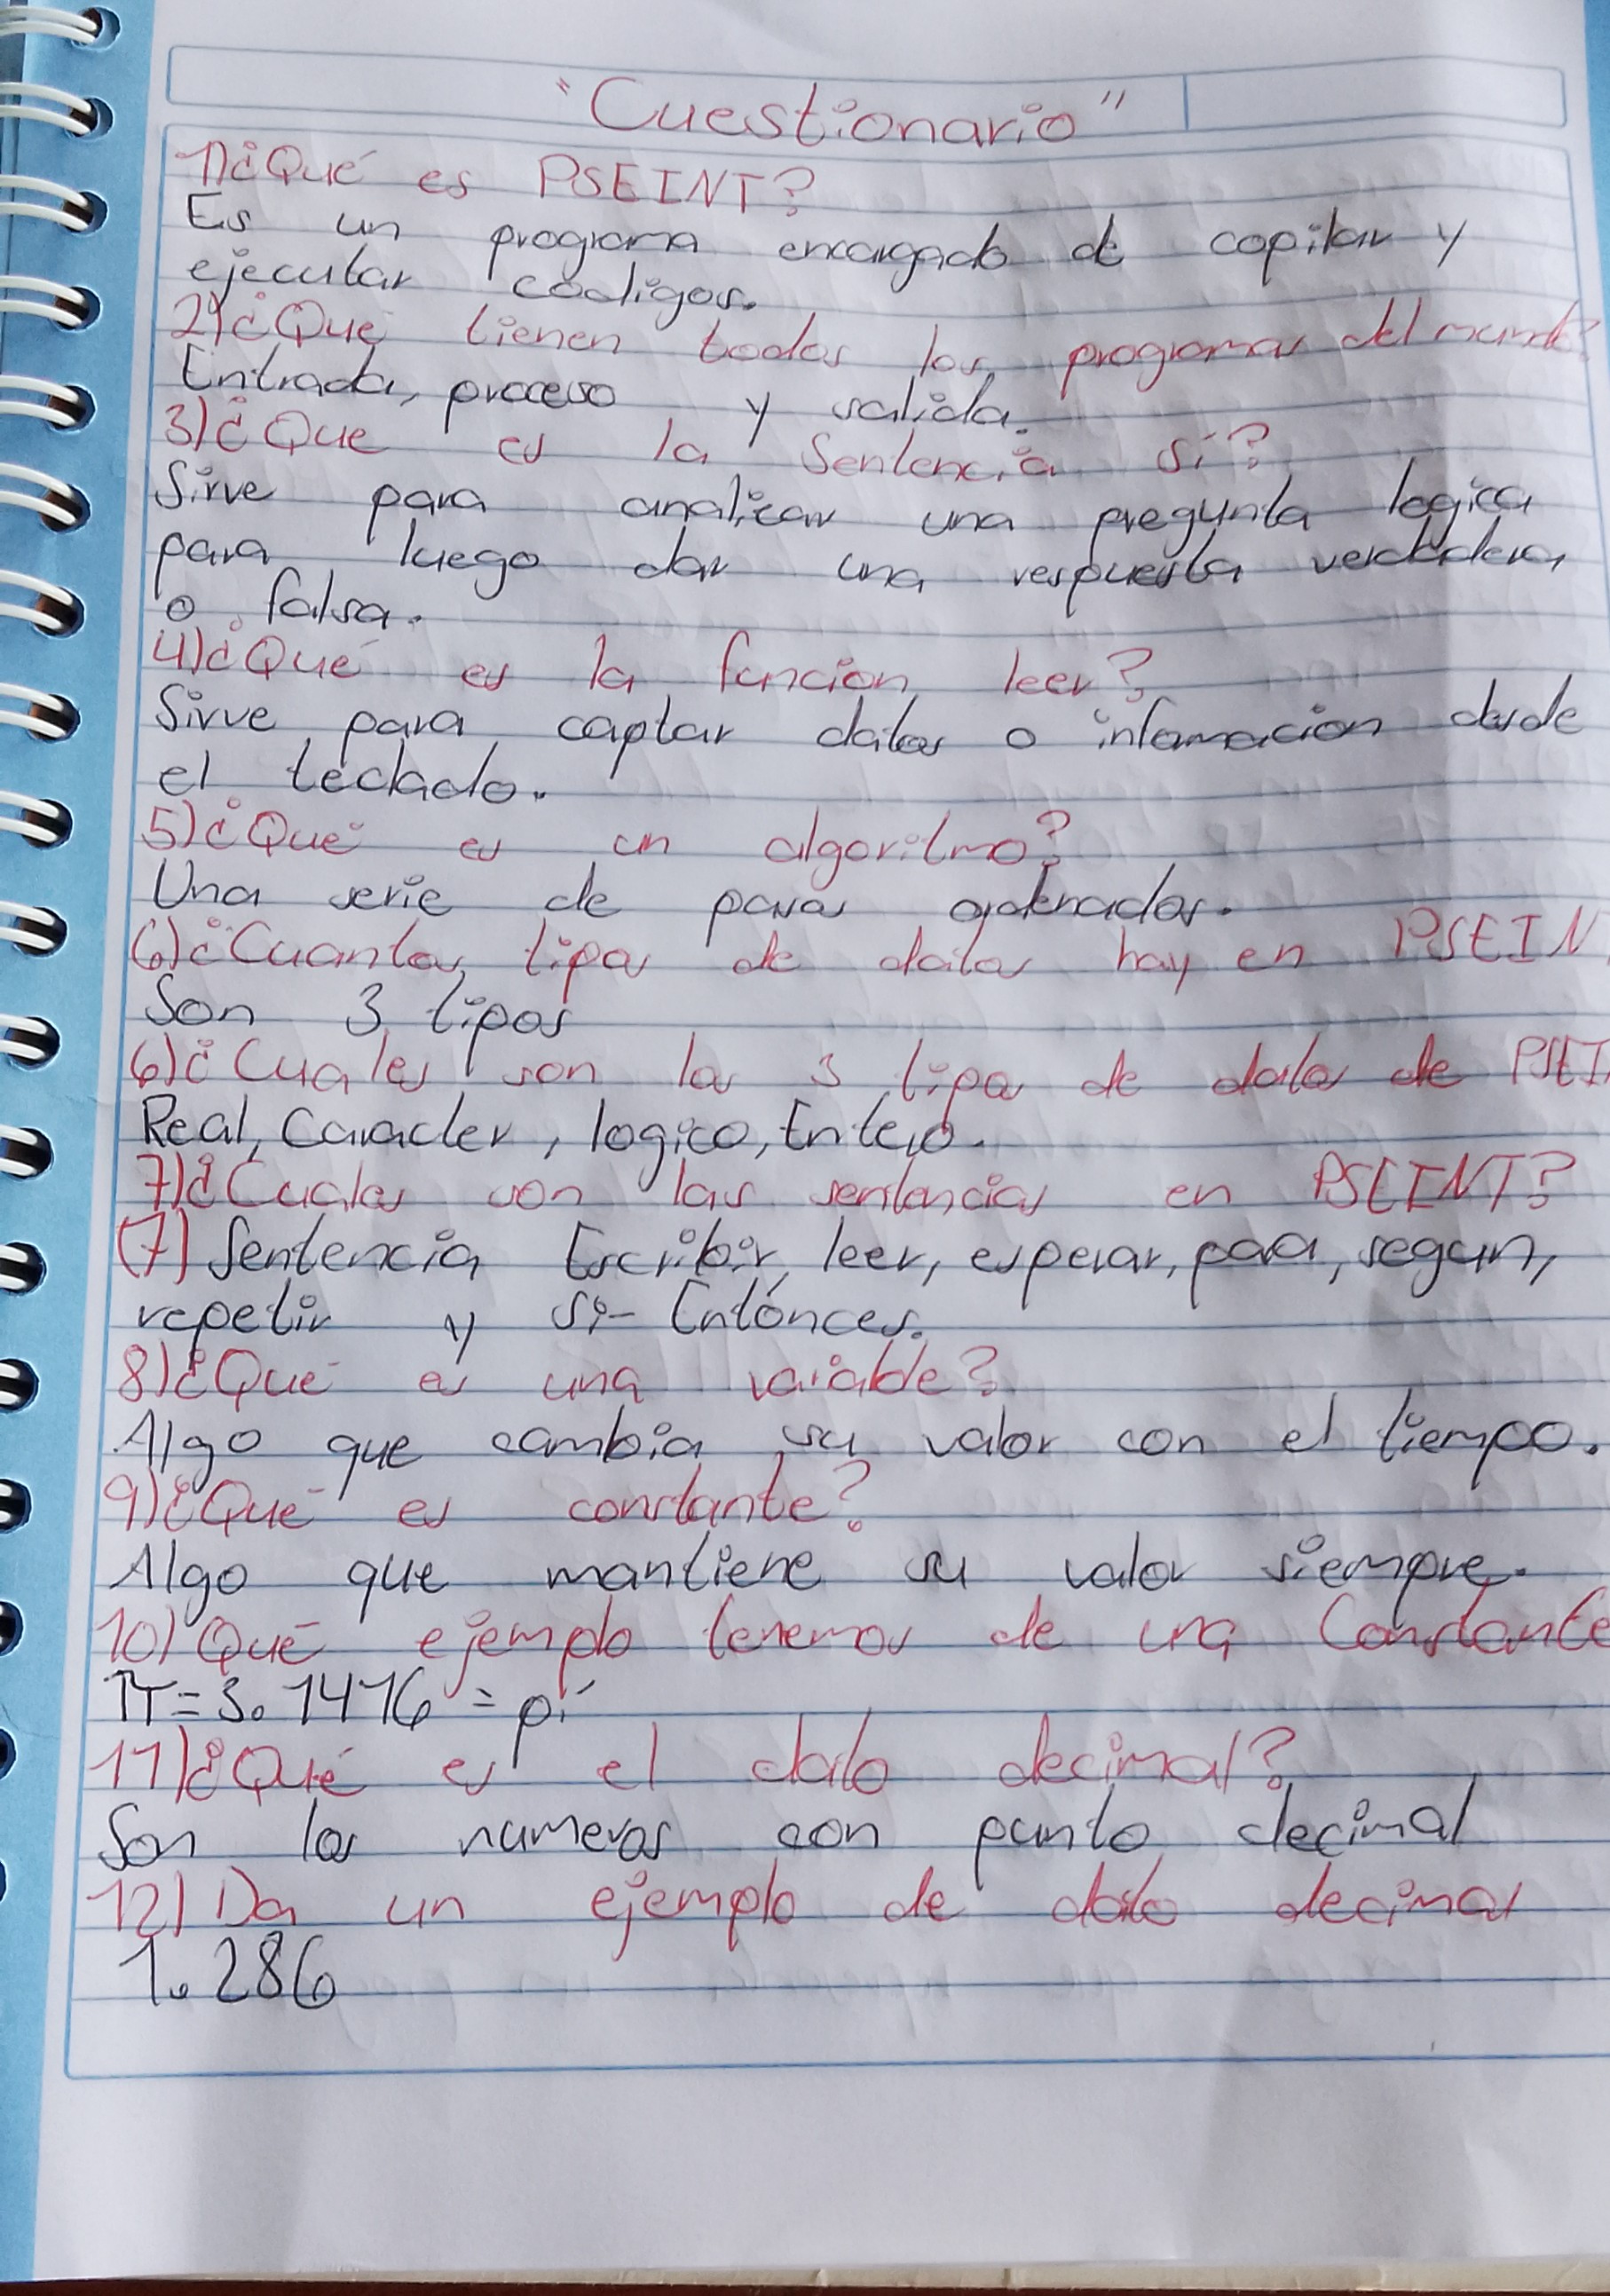 "Cuestionario"
1)¿Qué es PSEINT?
Es un programa encargado de copilar y
ejecutar codigos.
2)¿Que tienen todos los programas del mundo?
Entrada, proceso y salida.
3)¿Que es la Sentencia sí?
Sirve para analizar una pregunta logica
para luego dar una respuesta verdadera
o falsa.
4)¿Qué es la funcion leer?
Sirve para captar datos o informacion desde
el teclado.
5)¿Qué es un algoritmo?
Una serie de pasos ordenados.
6)¿Cuantos tipos de datos hay en PSEIN
Son 3 tipos
6)¿Cuales son los 3 tipos de datos de PSEI
Real, Caracter, logico, Entero.
7)¿Cuales son las sentencias en PSEINT?
(7) Sentencia Escribir, leer, esperar, para, segun,
repetir y Si- Entónces.
8)¿Qué es una variable?
Algo que cambia su valor con el tiempo.
9)¿Qué es constante?
Algo que mantiene su valor siempre.
10) Qué ejemplo tenemos de una Constante
π=3.1416 = pí
11)¿Qué es el dato decimal?
Son los numeros con punto decimal
12) Da un ejemplo de dato decimal
1.286